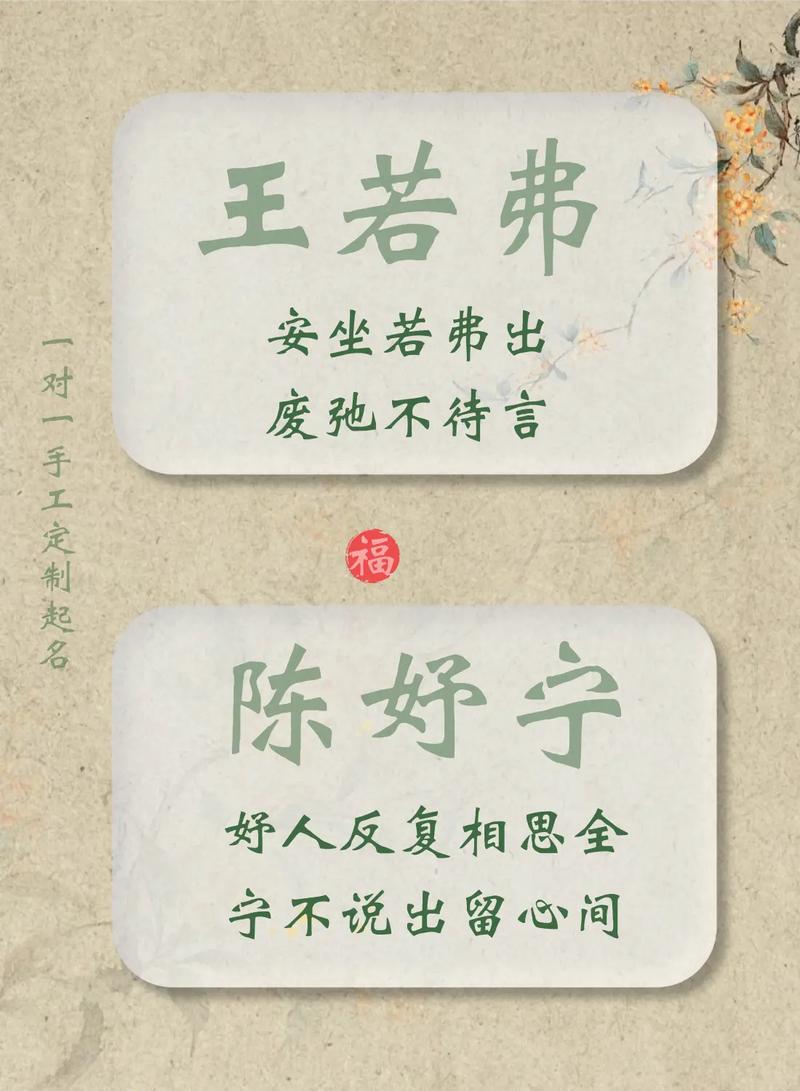 王若弗
安坐若弗出
废弛不待言
一对一手工定制起名
福
陈妤宁
妤人反复相思全
宁不说出留心间